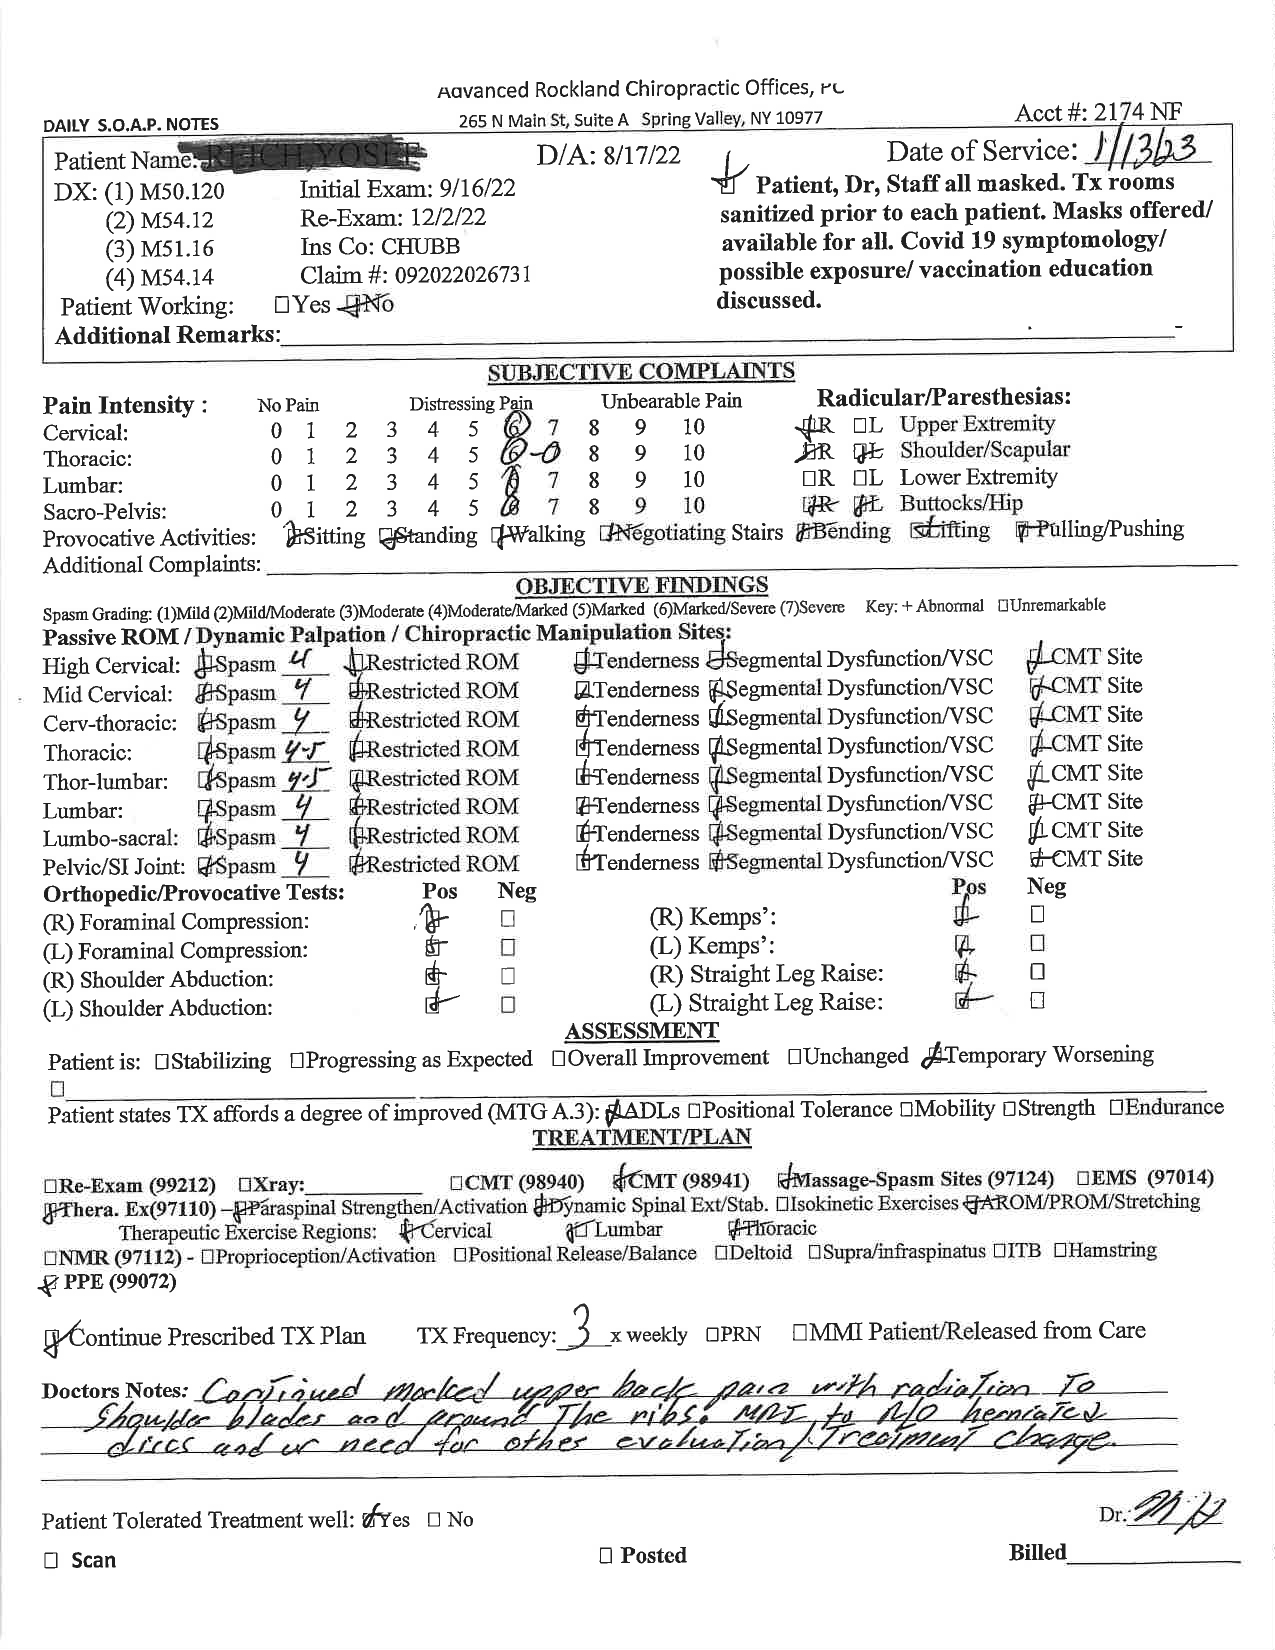 Advanced Rockland Chiropractic Offices, PC
DAILY S.O.A.P. NOTES 265 N Main St, Suite A Spring Valley, NY 10977 Acct #: 2174 NF
Patient Name: D/A: 8/17/22 Date of Service: 1/13/23
DX: (1) M50.120 Initial Exam: 9/16/22 Patient, Dr, Staff all masked. Tx rooms
(2) M54.12 Re-Exam: 12/2/22 sanitized prior to each patient. Masks offered/
(3) M51.16 Ins Co: CHUBB available for all. Covid 19 symptomology/
(4) M54.14 Claim #: 092022026731 possible exposure/ vaccination education
Patient Working: ☐Yes ☑No discussed.
Additional Remarks:
SUBJECTIVE COMPLAINTS
Pain Intensity : No Pain Distressing Pain Unbearable Pain Radicular/Paresthesias:
Cervical: 0 1 2 3 4 5 6 7 8 9 10 ☑R ☐L Upper Extremity
Thoracic: 0 1 2 3 4 5 6-7 8 9 10 ☑R ☑L Shoulder/Scapular
Lumbar: 0 1 2 3 4 5 6 7 8 9 10 ☐R ☐L Lower Extremity
Sacro-Pelvis: 0 1 2 3 4 5 6 7 8 9 10 ☑R ☑L Buttocks/Hip
Provocative Activities: ☑Sitting ☑Standing ☑Walking ☑Negotiating Stairs ☑Bending ☑Lifting ☑Pulling/Pushing
Additional Complaints:
OBJECTIVE FINDINGS
Spasm Grading: (1)Mild (2)Mild/Moderate (3)Moderate (4)Moderate/Marked (5)Marked (6)Marked/Severe (7)Severe Key: + Abnormal ☐Unremarkable
Passive ROM / Dynamic Palpation / Chiropractic Manipulation Sites:
High Cervical: ☑Spasm 4 ☑Restricted ROM ☑Tenderness ☑Segmental Dysfunction/VSC ☑CMT Site
Mid Cervical: ☑Spasm 4 ☑Restricted ROM ☑Tenderness ☑Segmental Dysfunction/VSC ☑CMT Site
Cerv-thoracic: ☑Spasm 4 ☑Restricted ROM ☑Tenderness ☑Segmental Dysfunction/VSC ☑CMT Site
Thoracic: ☑Spasm 4-5 ☑Restricted ROM ☑Tenderness ☑Segmental Dysfunction/VSC ☑CMT Site
Thor-lumbar: ☑Spasm 4-5 ☑Restricted ROM ☑Tenderness ☑Segmental Dysfunction/VSC ☑CMT Site
Lumbar: ☑Spasm 4 ☑Restricted ROM ☑Tenderness ☑Segmental Dysfunction/VSC ☑CMT Site
Lumbo-sacral: ☑Spasm 4 ☑Restricted ROM ☑Tenderness ☑Segmental Dysfunction/VSC ☑CMT Site
Pelvic/SI Joint: ☑Spasm 4 ☑Restricted ROM ☑Tenderness ☑Segmental Dysfunction/VSC ☑CMT Site
Orthopedic/Provocative Tests: Pos Neg Pos Neg
(R) Foraminal Compression: ☑ ☐ (R) Kemps': ☑ ☐
(L) Foraminal Compression: ☑ ☐ (L) Kemps': ☑ ☐
(R) Shoulder Abduction: ☑ ☐ (R) Straight Leg Raise: ☑ ☐
(L) Shoulder Abduction: ☑ ☐ (L) Straight Leg Raise: ☑ ☐
ASSESSMENT
Patient is: ☐Stabilizing ☐Progressing as Expected ☐Overall Improvement ☐Unchanged ☑Temporary Worsening
☐
Patient states TX affords a degree of improved (MTG A.3): ☑ADLs ☐Positional Tolerance ☐Mobility ☐Strength ☐Endurance
TREATMENT/PLAN
☐Re-Exam (99212) ☐Xray: ☐CMT (98940) ☑CMT (98941) ☑Massage-Spasm Sites (97124) ☐EMS (97014)
☑Thera. Ex(97110) – ☑Paraspinal Strengthen/Activation ☑Dynamic Spinal Ext/Stab. ☐Isokinetic Exercises ☑AROM/PROM/Stretching
Therapeutic Exercise Regions: ☑Cervical ☑Lumbar ☑Thoracic
☐NMR (97112) - ☐Proprioception/Activation ☐Positional Release/Balance ☐Deltoid ☐Supra/infraspinatus ☐ITB ☐Hamstring
☑ PPE (99072)
☑Continue Prescribed TX Plan TX Frequency: 3 x weekly ☐PRN ☐MMI Patient/Released from Care
Doctors Notes: Continued marked upper back pain with radiation to
shoulder blades and around the ribs. MRI to R/O herniated
discs and or need for other evaluation/treatment change.
Patient Tolerated Treatment well: ☑Yes ☐ No Dr.
☐ Scan ☐ Posted Billed